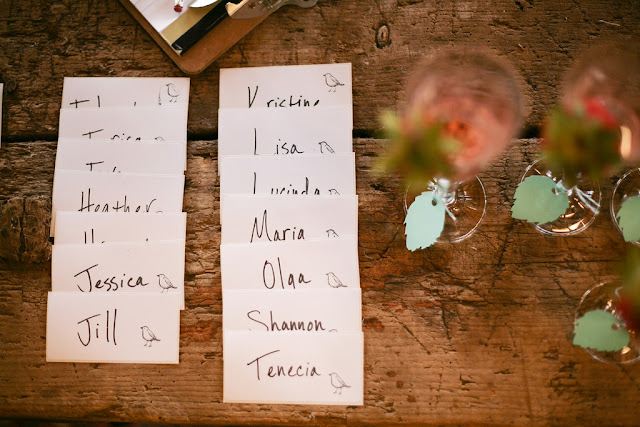 Heather
Jessica
Jill
Kristine
Lisa
Lucinda
Maria
Olga
Shannon
Tenecia